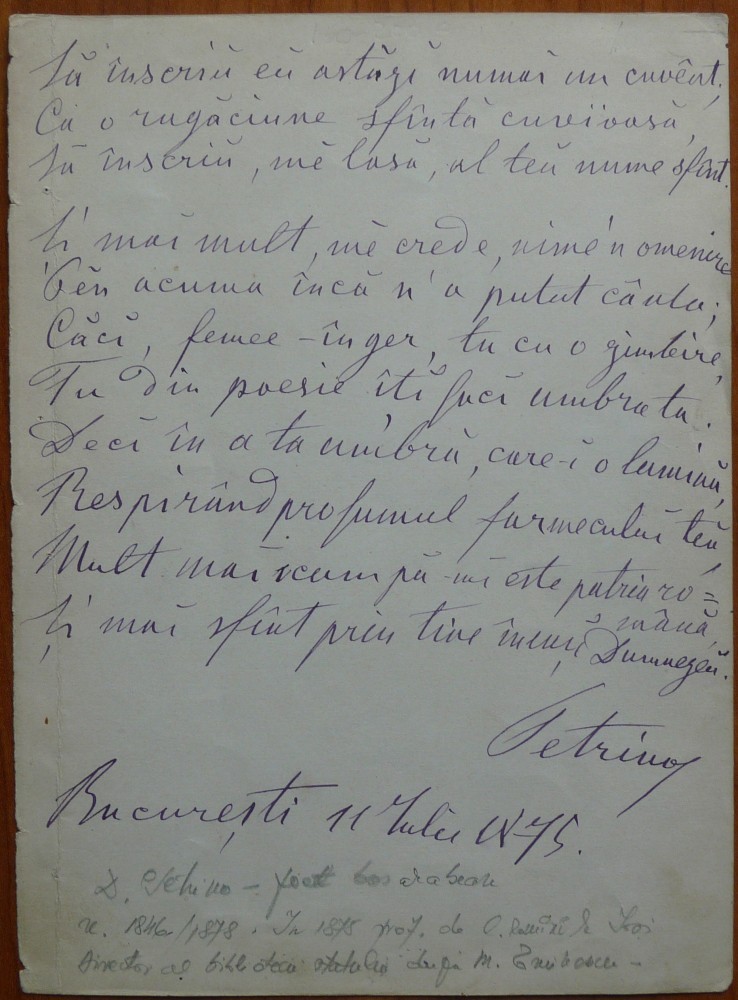 Să înscriŭ eŭ astăzĭ numaĭ un cuvênt,
Ca o rugăciune sfîntă cuviósă,
Să înscriŭ, mĕ lasă, al tĕŭ nume sfînt.
Șĭ maĭ mult, mĕ crede, nime'n omenire
Pên acuma încă n'a putut cânta;
Căcĭ, femee-înger, tu cu o zimbire,
Tu din poesie îțĭ facĭ umbra ta.
Decĭ în a ta umbră, care-i o lumină,
Respirând profumul farmeculuĭ tĕŭ,
Mult maĭ scumpă-mĭ este patria ro=
mână,
Șĭ maĭ sfînt prin tine însușĭ Dumnezeŭ.
Petrino
Bucureștĭ 11 Iulie 1875.
D. Petrino – poet basarabean
n. 1846/1878. In 1875 prof. de l. română la Iași
Director al bibliotecii statului după M. Eminescu –